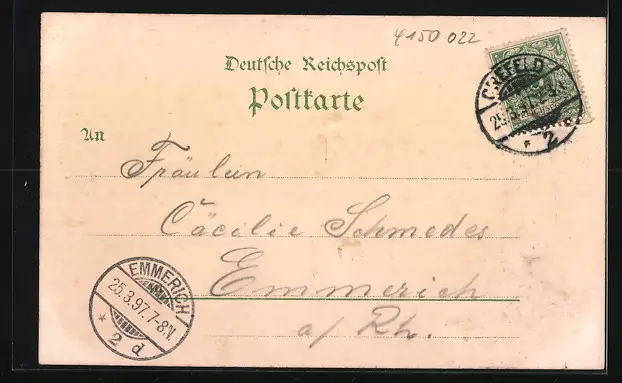 4150 022
Deutsche Reichspost
Postkarte
CREFELD
25.3.97
2
An
Fräulein
Cäcilie Schmedes
Emmerich
a/Rh.
EMMERICH
25.3.97.7-8.N.
* 2 d